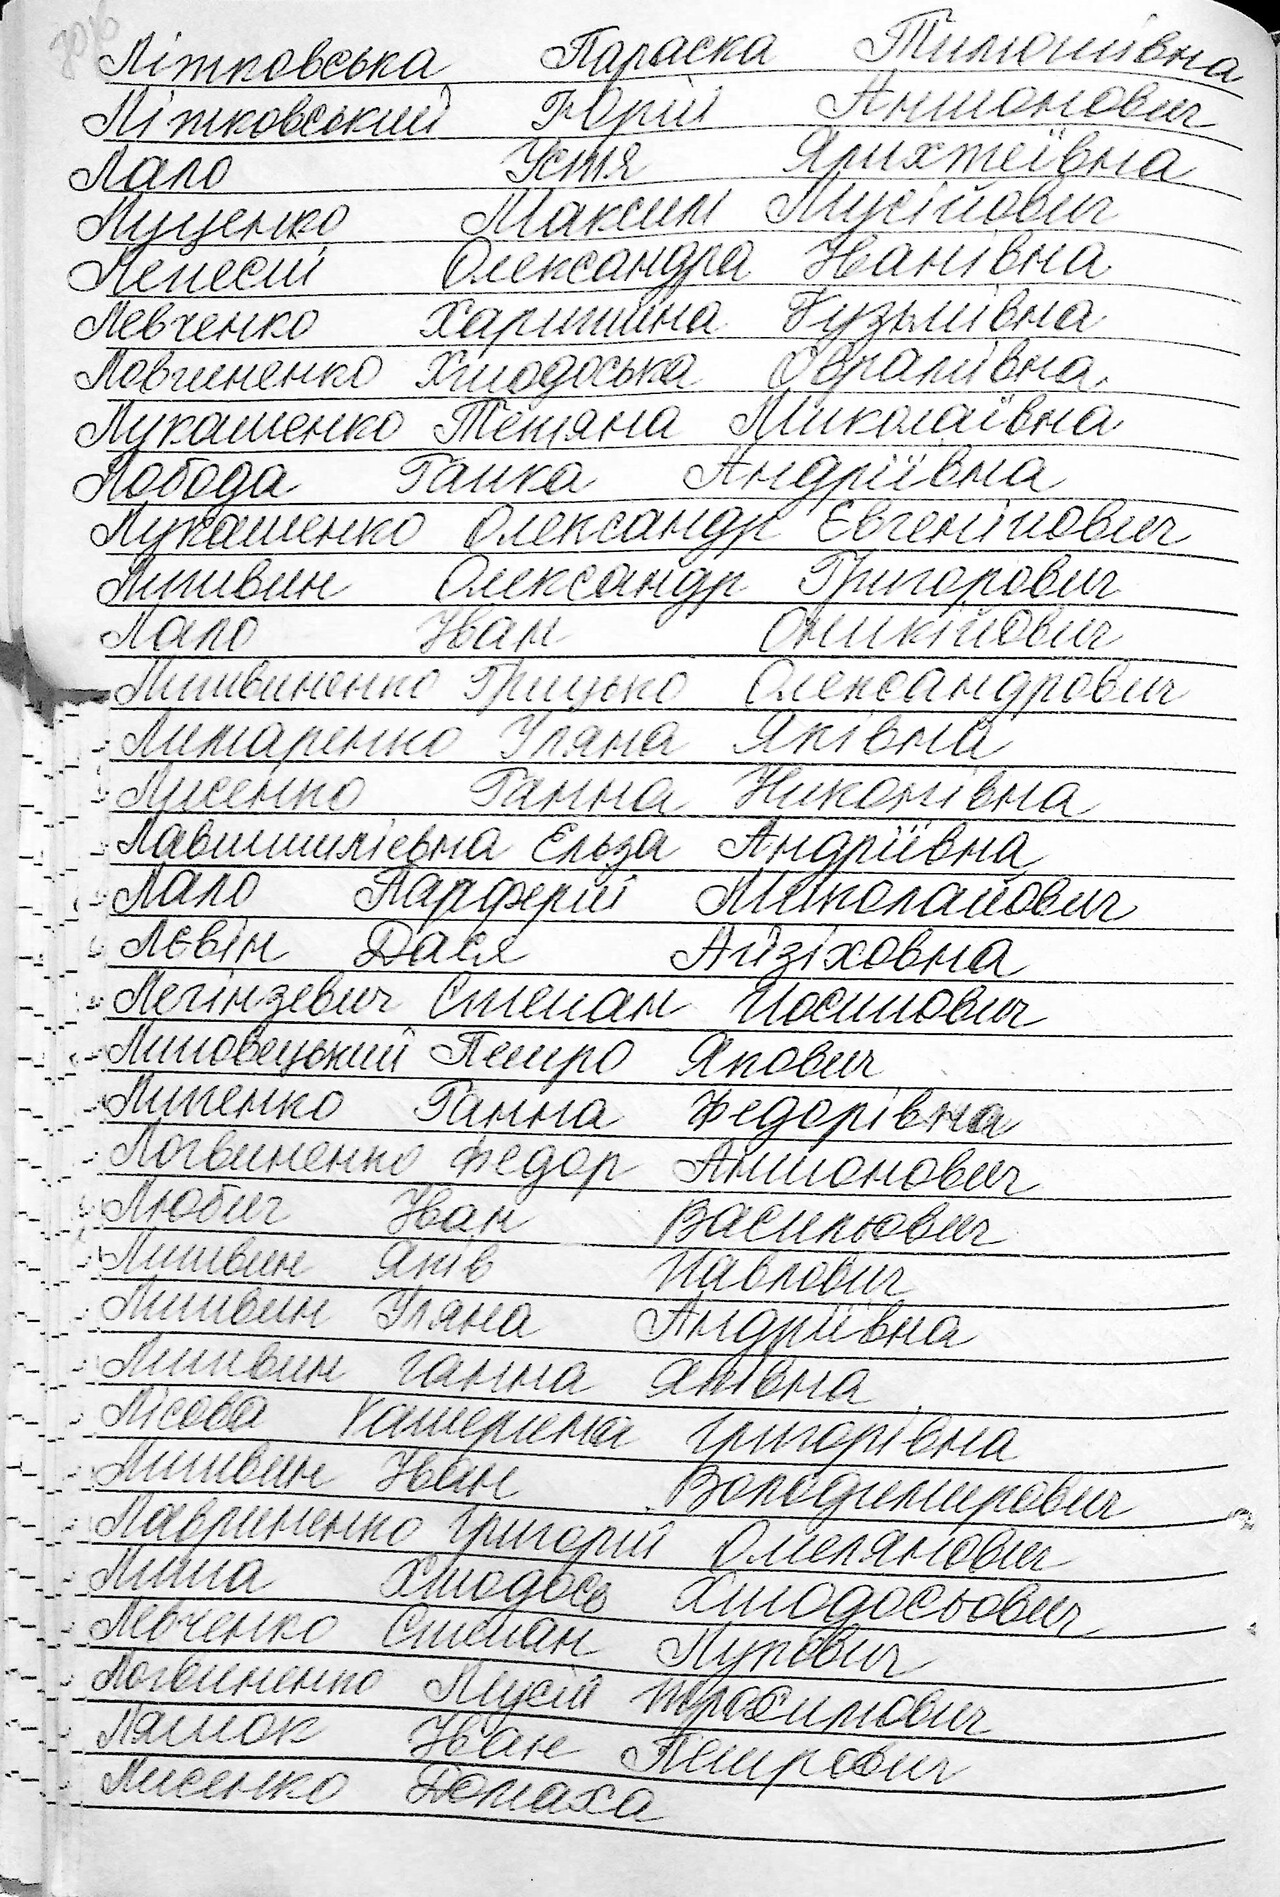 Літковська Параска Тимошівна
Літковський Юрій Антонович
Лало Устя Ярихтеївна
Луценко Максим Мусійович
Лепесій Олександра Іванівна
Левченко Харитина Кузьмівна
Ловгиненко Хтодоська Оврамівна
Лукашенко Тетяна Миколаївна
Лобода Ганка Андріївна
Лукашенко Олександр Євгенійович
Литвин Олександр Григорович
Лало Іван Оникійович
Литвиненко Грицько Олександрович
Литаренко Уляна Яківна
Лисенко Ганна Никонівна
Ельза Андріївна
Лало Парферій Миколайович
Лєвін Дася Айзіховна
Легінзевич Степан Йосипович
Липовецький Петро Якович
Липенко Ганна Федорівна
Логвиненко Федор Антонович
Любич Іван Васильович
Литвин Яків Павлович
Литвин Уляна Андріївна
Литвин Ганна Яківна
Лісова Катерина Григорівна
Литвин Іван Володимирович
Лавриненко Григорій Омелянович
Липа Хтодось Хтодосьович
Левченко Степан Лукович
Логвиненко Мусій Трохимович
Ляшок Іван Петрович
Лисенко Домаха